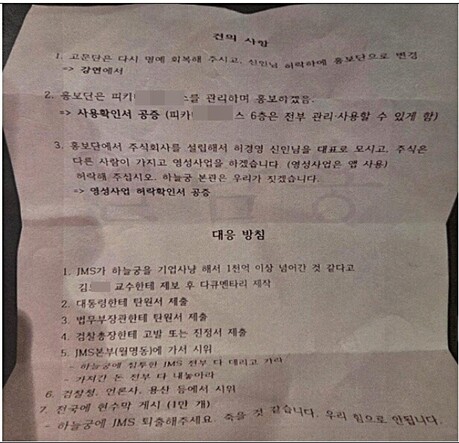 건의 사항
1. 고문단은 다시 명예 회복해 주시고, 신인님 허락하에 홍보단으로 변경
=> 강연에서
2. 홍보단은 피카 스를 관리하며 홍보하겠음.
=> 사용확인서 공증 (피카 스 6층은 전부 관리·사용할 수 있게 함)
3. 홍보단에서 주식회사를 설립해서 허경영 신인님을 대표로 모시고, 주식은
다른 사람이 가지고 영성사업을 하겠습니다. (영성사업은 앱 사용)
허락해 주십시오. 하늘궁 본관은 우리가 짓겠습니다.
=> 영성사업 허락확인서 공증
대응 방침
1. JMS가 하늘궁을 기업사냥 해서 1천억 이상 넘어간 것 같다고
김 교수한테 제보 후 다큐멘타리 제작
2. 대통령한테 탄원서 제출
3. 법무부장관한테 탄원서 제출
4. 검찰총장한테 고발 또는 진정서 제출
5. JMS본부(월명동)에 가서 시위
- 하늘궁에 침투한 JMS 전부 다 데리고 가라
- 가져간 돈 전부 다 내놓아라
6. 검찰청, 언론사, 용산 등에서 시위
7. 전국에 현수막 게시 (1만 개)
- 하늘궁에 JMS 퇴출해주세요. 죽을 것 같습니다. 우리 힘으로 안됩니다.